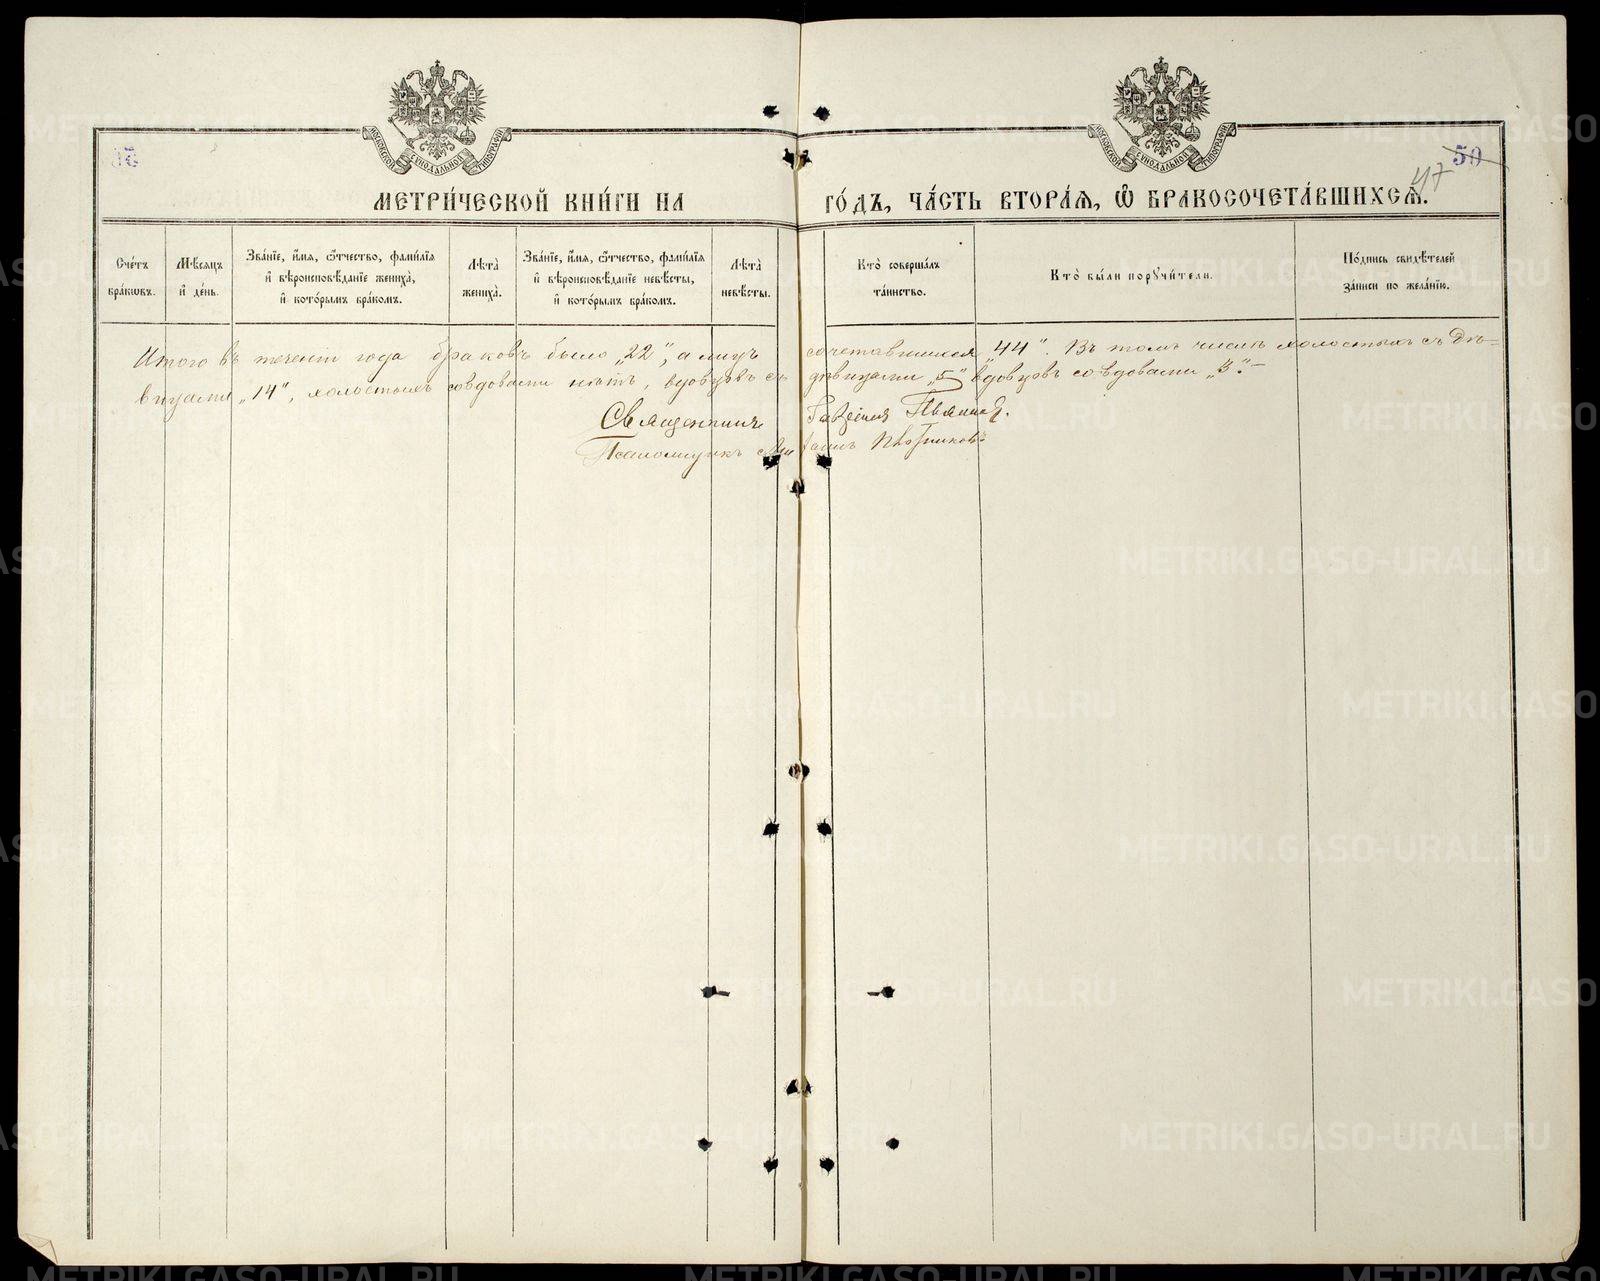 МЕТРИ́ЧЕСКОЙ КНИ́ГИ НА ГО́ДЪ, ЧА́СТЬ ВТОРА́Я, Ѽ БРАКОСОЧЕТА́ВШИХСЯ.
МОСКОВСКОЙ СѴНОДАЛЬНОЙ ТИПОГРАФІИ
МОСКОВСКОЙ СѴНОДАЛЬНОЙ ТИПОГРАФІИ
50
47
Сче́тъ
бра́ковъ.
Мѣ́сяцъ
и҆ де́нь.
Зва́нїе, и҆́мя, ѻ҆́тчество, фами́лїя
и҆ вѣроисповѣ́данїе жениха̀,
и҆ кото́рымъ бра́комъ.
Лѣ́та
жениха̀.
Зва́нїе, и҆́мя, ѻ҆́тчество, фами́лїя
и҆ вѣроисповѣ́данїе невѣ́сты,
и҆ кото́рымъ бра́комъ.
Лѣ́та
невѣ́сты.
Кто̀ соверша́лъ
та́инство.
Кто̀ бы́ли порꙋчи́тели.
По́дпись свидѣ́телей
за́писи по жела́нїю.
Итого въ теченіи года браковъ было „22“, а лицъ сочетавшихся „44“. Въ томъ числѣ холостыхъ съ дѣ=
вицами „14“, холостыхъ со вдовами нѣтъ, вдовцовъ съ дѣвицами „5“ вдовцовъ со вдовами „3“.–
Священникъ Гавріилъ
Псаломщикъ
METRIKI.GASO-URAL.RU